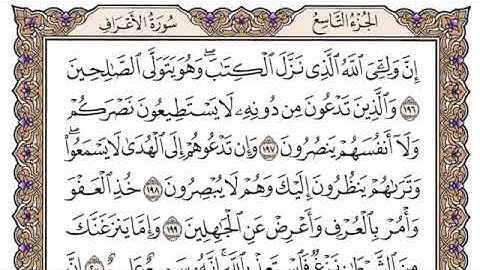 الجزء التاسع
سورة الأعراف
إِنَّ وَلِـِّۧيَ ٱللَّهُ ٱلَّذِي نَزَّلَ ٱلْكِتَٰبَ ۖ وَهُوَ يَتَوَلَّى ٱلصَّٰلِحِينَ
١٩٦ وَٱلَّذِينَ تَدْعُونَ مِن دُونِهِۦ لَا يَسْتَطِيعُونَ نَصْرَكُمْ
وَلَآ أَنفُسَهُمْ يَنصُرُونَ ١٩٧ وَإِن تَدْعُوهُمْ إِلَى ٱلْهُدَىٰ لَا يَسْمَعُوا۟ ۖ
وَتَرَىٰهُمْ يَنظُرُونَ إِلَيْكَ وَهُمْ لَا يُبْصِرُونَ ١٩٨ خُذِ ٱلْعَفْوَ
وَأْمُرْ بِٱلْعُرْفِ وَأَعْرِضْ عَنِ ٱلْجَٰهِلِينَ ١٩٩ وَإِمَّا يَنزَغَنَّكَ
مِنَ ٱلشَّيْطَٰنِ نَزْغٌ فَٱسْتَعِذْ بِٱللَّهِ ۚ إِنَّهُۥ سَمِيعٌ عَلِيمٌ ٢٠٠ إِنَّ